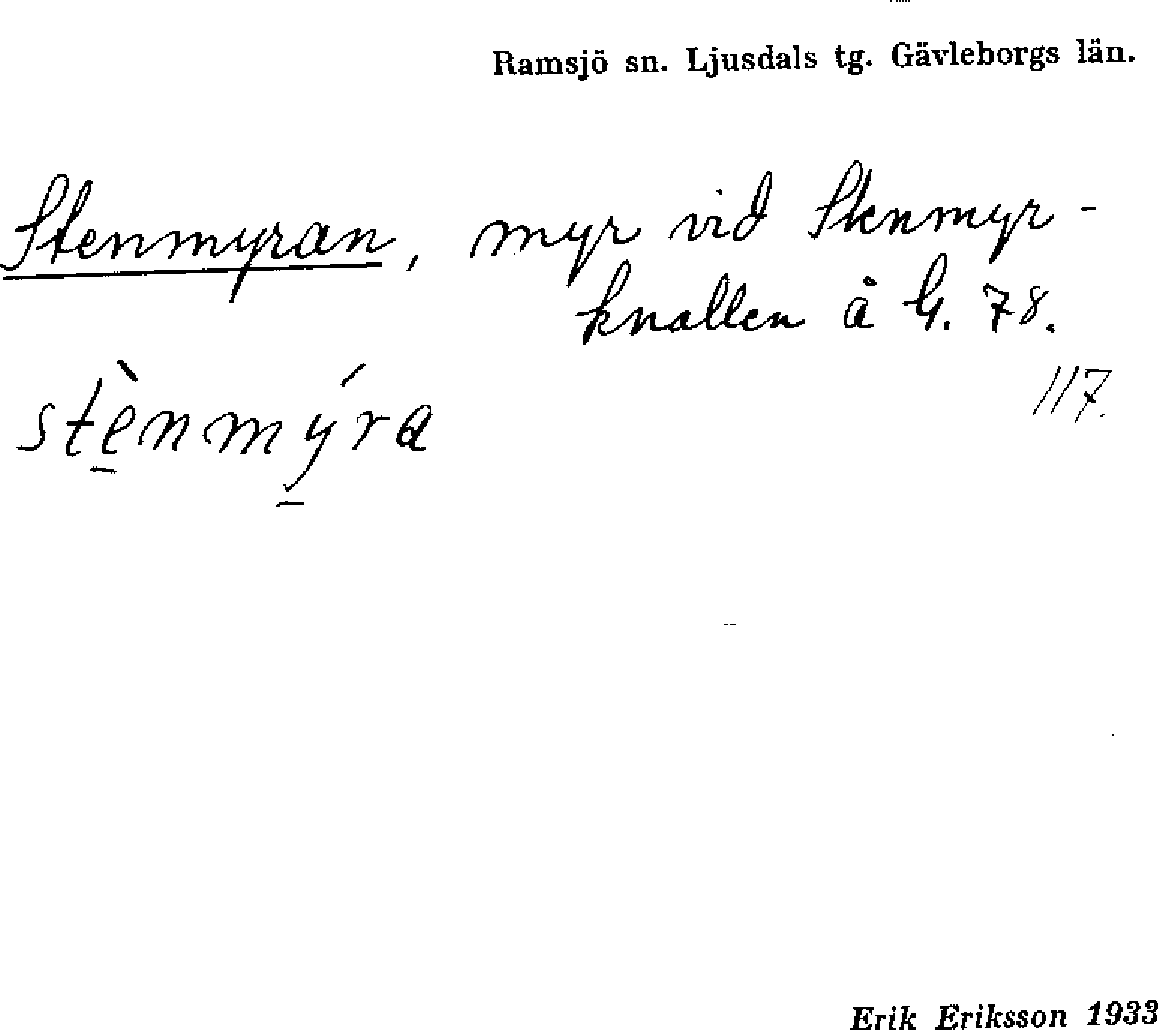 Ramsjö sn. Ljusdals tg. Gävleborgs län.
Stenmyran, myr vid Stenmyr-
knallen å G. 78.
117.
stè̱nmý̱ra
Erik Eriksson 1933